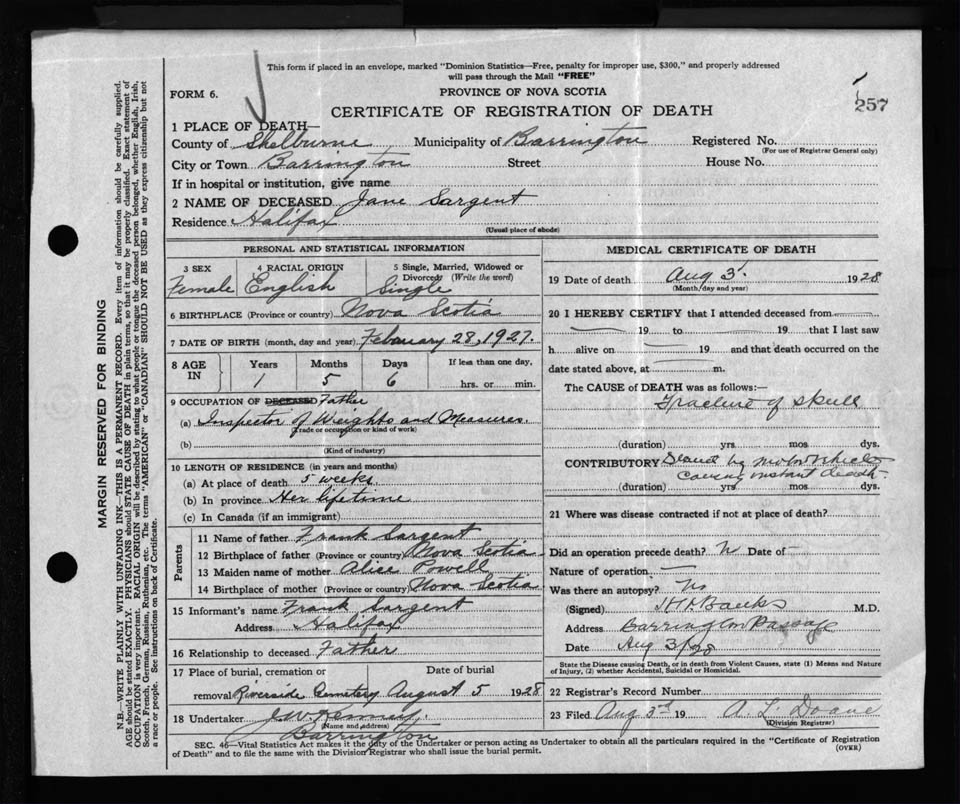 This form if placed in an envelope, marked "Dominion Statistics—Free, penalty for improper use, $300," and properly addressed
will pass through the Mail "FREE"
FORM 6.
PROVINCE OF NOVA SCOTIA
257
CERTIFICATE OF REGISTRATION OF DEATH
1 PLACE OF DEATH—
County of Shelburne Municipality of Barrington Registered No.
(For use of Registrar General only)
City or Town Barrington Street House No.
If in hospital or institution, give name
2 NAME OF DECEASED Jane Sargent
Residence Halifax
(Usual place of abode)
PERSONAL AND STATISTICAL INFORMATION
3 SEX 4 RACIAL ORIGIN 5 Single, Married, Widowed or
Divorced (Write the word)
Female English Single
6 BIRTHPLACE (Province or country) Nova Scotia
7 DATE OF BIRTH (month, day and year) February 28, 1927.
8 AGE IN Years Months Days If less than one day,
1 5 6 hrs. or min.
9 OCCUPATION OF DECEASED Father
(a) Inspector of Weights and Measures.
(Trade or occupation or kind of work)
(b)
(Kind of industry)
10 LENGTH OF RESIDENCE (in years and months)
(a) At place of death 5 weeks
(b) In province Her lifetime
(c) In Canada (if an immigrant)
Parents
11 Name of father Frank Sargent
12 Birthplace of father (Province or country) Nova Scotia
13 Maiden name of mother Alice Powell
14 Birthplace of mother (Province or country) Nova Scotia
15 Informant's name Frank Sargent
Address Halifax
16 Relationship to deceased Father
17 Place of burial, cremation or Date of burial
removal Riverside Cemetery August 5 1928
18 Undertaker J.W.
(Name and address)
Barrington
MEDICAL CERTIFICATE OF DEATH
19 Date of death Aug 3 1928
(Month, day and year)
20 I HEREBY CERTIFY that I attended deceased from
19 to 19 that I last saw
h alive on 19 and that death occurred on the
date stated above, at m.
The CAUSE of DEATH was as follows:—
Fracture of skull
(duration) yrs. mos. dys.
CONTRIBUTORY by motor vehicle
causing instant death
(duration) yrs. mos. dys.
21 Where was disease contracted if not at place of death?
Did an operation precede death? N Date of —
Nature of operation —
Was there an autopsy? No
(Signed) Banks M.D.
Address Barrington Passage
Date Aug 3/28
State the Disease causing Death, or in death from Violent Causes, state (1) Means and Nature
of Injury, (2) whether Accidental, Suicidal or Homicidal.
22 Registrar's Record Number
23 Filed Aug 3rd 19 A. L. Doane
(Division Registrar)
SEC. 46—Vital Statistics Act makes it the duty of the Undertaker or person acting as Undertaker to obtain all the particulars required in the "Certificate of Registration
of Death" and to file the same with the Division Registrar who shall issue the burial permit.
(OVER)
MARGIN RESERVED FOR BINDING
N.B.—WRITE PLAINLY WITH UNFADING INK—THIS IS A PERMANENT RECORD. Every item of information should be carefully supplied.
AGE should be stated EXACTLY. PHYSICIANS should STATE CAUSE OF DEATH in plain terms, so that it may be properly classified. Exact statement of
OCCUPATION is very important. RACIAL ORIGIN will be described by stating to what people or tongue the deceased person belonged, whether English, Irish,
Scotch, French, German, Russian, Ruthenian, etc. The terms "AMERICAN" or "CANADIAN" SHOULD NOT BE USED as they express citizenship but not
a race or people. See instructions on back of Certificate.